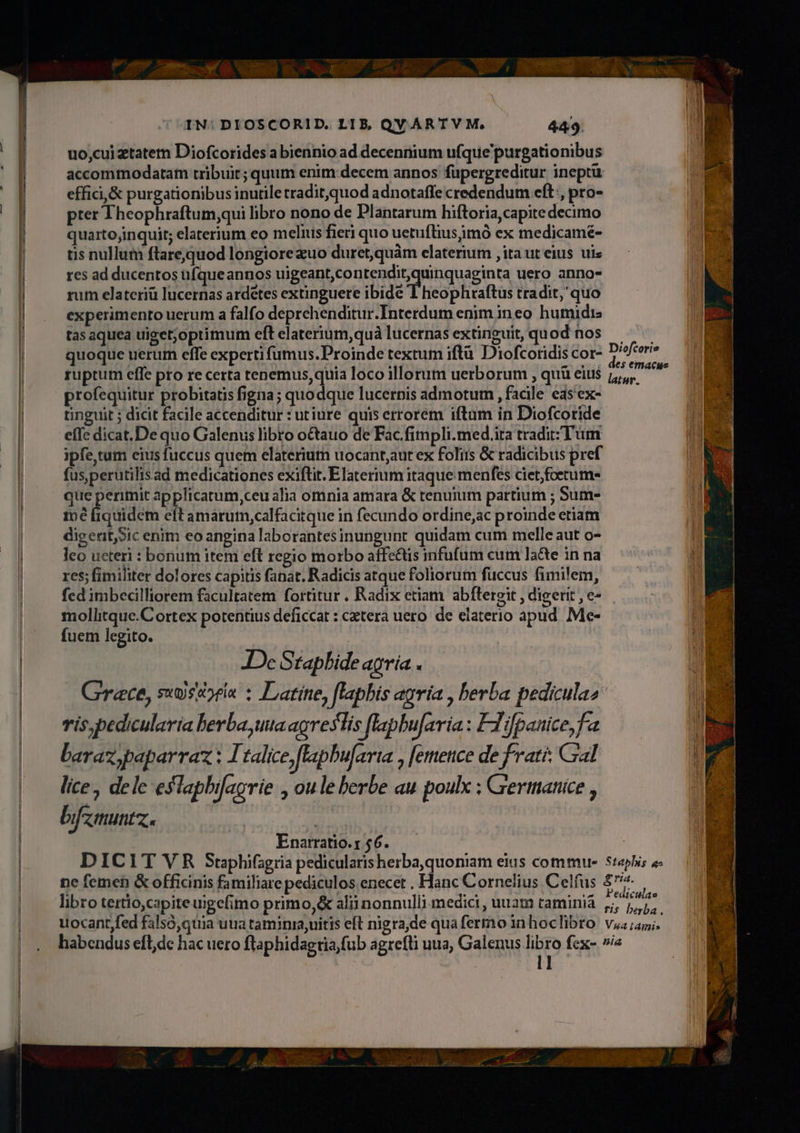 IN DIOSCORID. LIB. QVARTVM. 449.
uo,cui ætatem Dioſcorides a biennio ad decennium uſque purgationibus
accommodatam tribuit; quum enim decem annos ſupergreditur ineptũ
effici,& purgationibus inutile tradit,quod adnotaſſe credendum eſt, pro-
pter Theophraſtum,qui libro nono de Plantarum hiſtoria,capite decimo
quarto,inquit; elaterium eo melius fieri quo uetuſtius,imò ex medicamẽ-
tis nullum ſtare,quod longiore æuo duret,quàm elaterium ,ita ut eius ui⸗
res ad ducentos uſque annos uigeant,contendit,quinquaginta uero anno⸗
rum elateriũ lucernas ardẽtes extinguere ibidẽ Theophraſtus tradit, quo
experimento uerum a falſo deprehenditur.Interdum enim in eo humidi⸗
tas aquea uiget;optimum eſt elaterium,quà lucernas extinguit, quod nos
quoque uerum eſſe experti ſumus.Proinde textum iſtũ Dioſcoridis cor-
ruptum eſſe pro re certa tenemus,quia loco illorum uerborum , quũ eius
proſequitur probitatis ſigna; quodque lucernis admotum , facile eas ex-
tinguit ; dicit facile accenditur : ut iure quis errorem iſtum in Dioſcoride
eſſe dicat.De quo Galenus libro octauo de Fac.ſimpli.med.ita tradit:Tum
ipſe,tum eius ſuccus quem elaterium uocant,aut ex foliis & radicibus preſ
ſus,perutilis ad medicationes exiſtit.Elaterium itaque menſes ciet,fœtum-
que perimit applicatum,ceu alia omnia amara & tenuium partium ; Sum-
mè ſiquidem eſt amarum,calfacitque in ſecundo ordine,ac proinde etiam
digerit,Sic enim eo angina laborantes inungunt quidam cum melle aut o-
leo ueteri : bonum item eſt regio morbo affectis infuſum cum lacte in na
res; ſimiliter dolores capitis ſanat. Radicis atque foliorum ſuccus ſimilem,
ſed imbecilliorem facultatem ſortitur . Radix etiam abſtergit , digerit , e-
mollitque.Cortex potentius deſiccat : cætera uero de elaterio apud Me-
ſuem legito.
Dioſcori⸗
des emacu⸗
latur.
De Staphide agria .
Græce, ςαφὶς ἀγρία : Latine, ſtaphis agria , herba pedicula⸗
ris,pedicularia herba,uua agreſtis ſtaphuſaria : Hiſpanice, fa
baraz,paparraz : Italice,ſtaphuſaria , ſemence de frati: Gal
lice , de le eſtaphiſagrie , ou le herbe au poulx : Germanice ,
biſzmuntz.
Enarratio.156.
DICITVR Staphiſagria pedicularis herba,quoniam eius commu-
ne ſemen & officinis familiare pediculos enecet . Hanc Cornelius Celſus
libro tertio,capite uigeſimo primo,& alii nonnulli medici , uuam taminiã
uocant,ſed falsò,quia uua taminia,uitis eſt nigra,de qua ſermo in hoc libro
habendus eſt,de hac uero ſtaphidagria,ſub agreſti uua, Galenus libro ſex-
Staphis a⸗
gria.
Pedicula⸗
ris herba.
Vua tami⸗
nia
ll